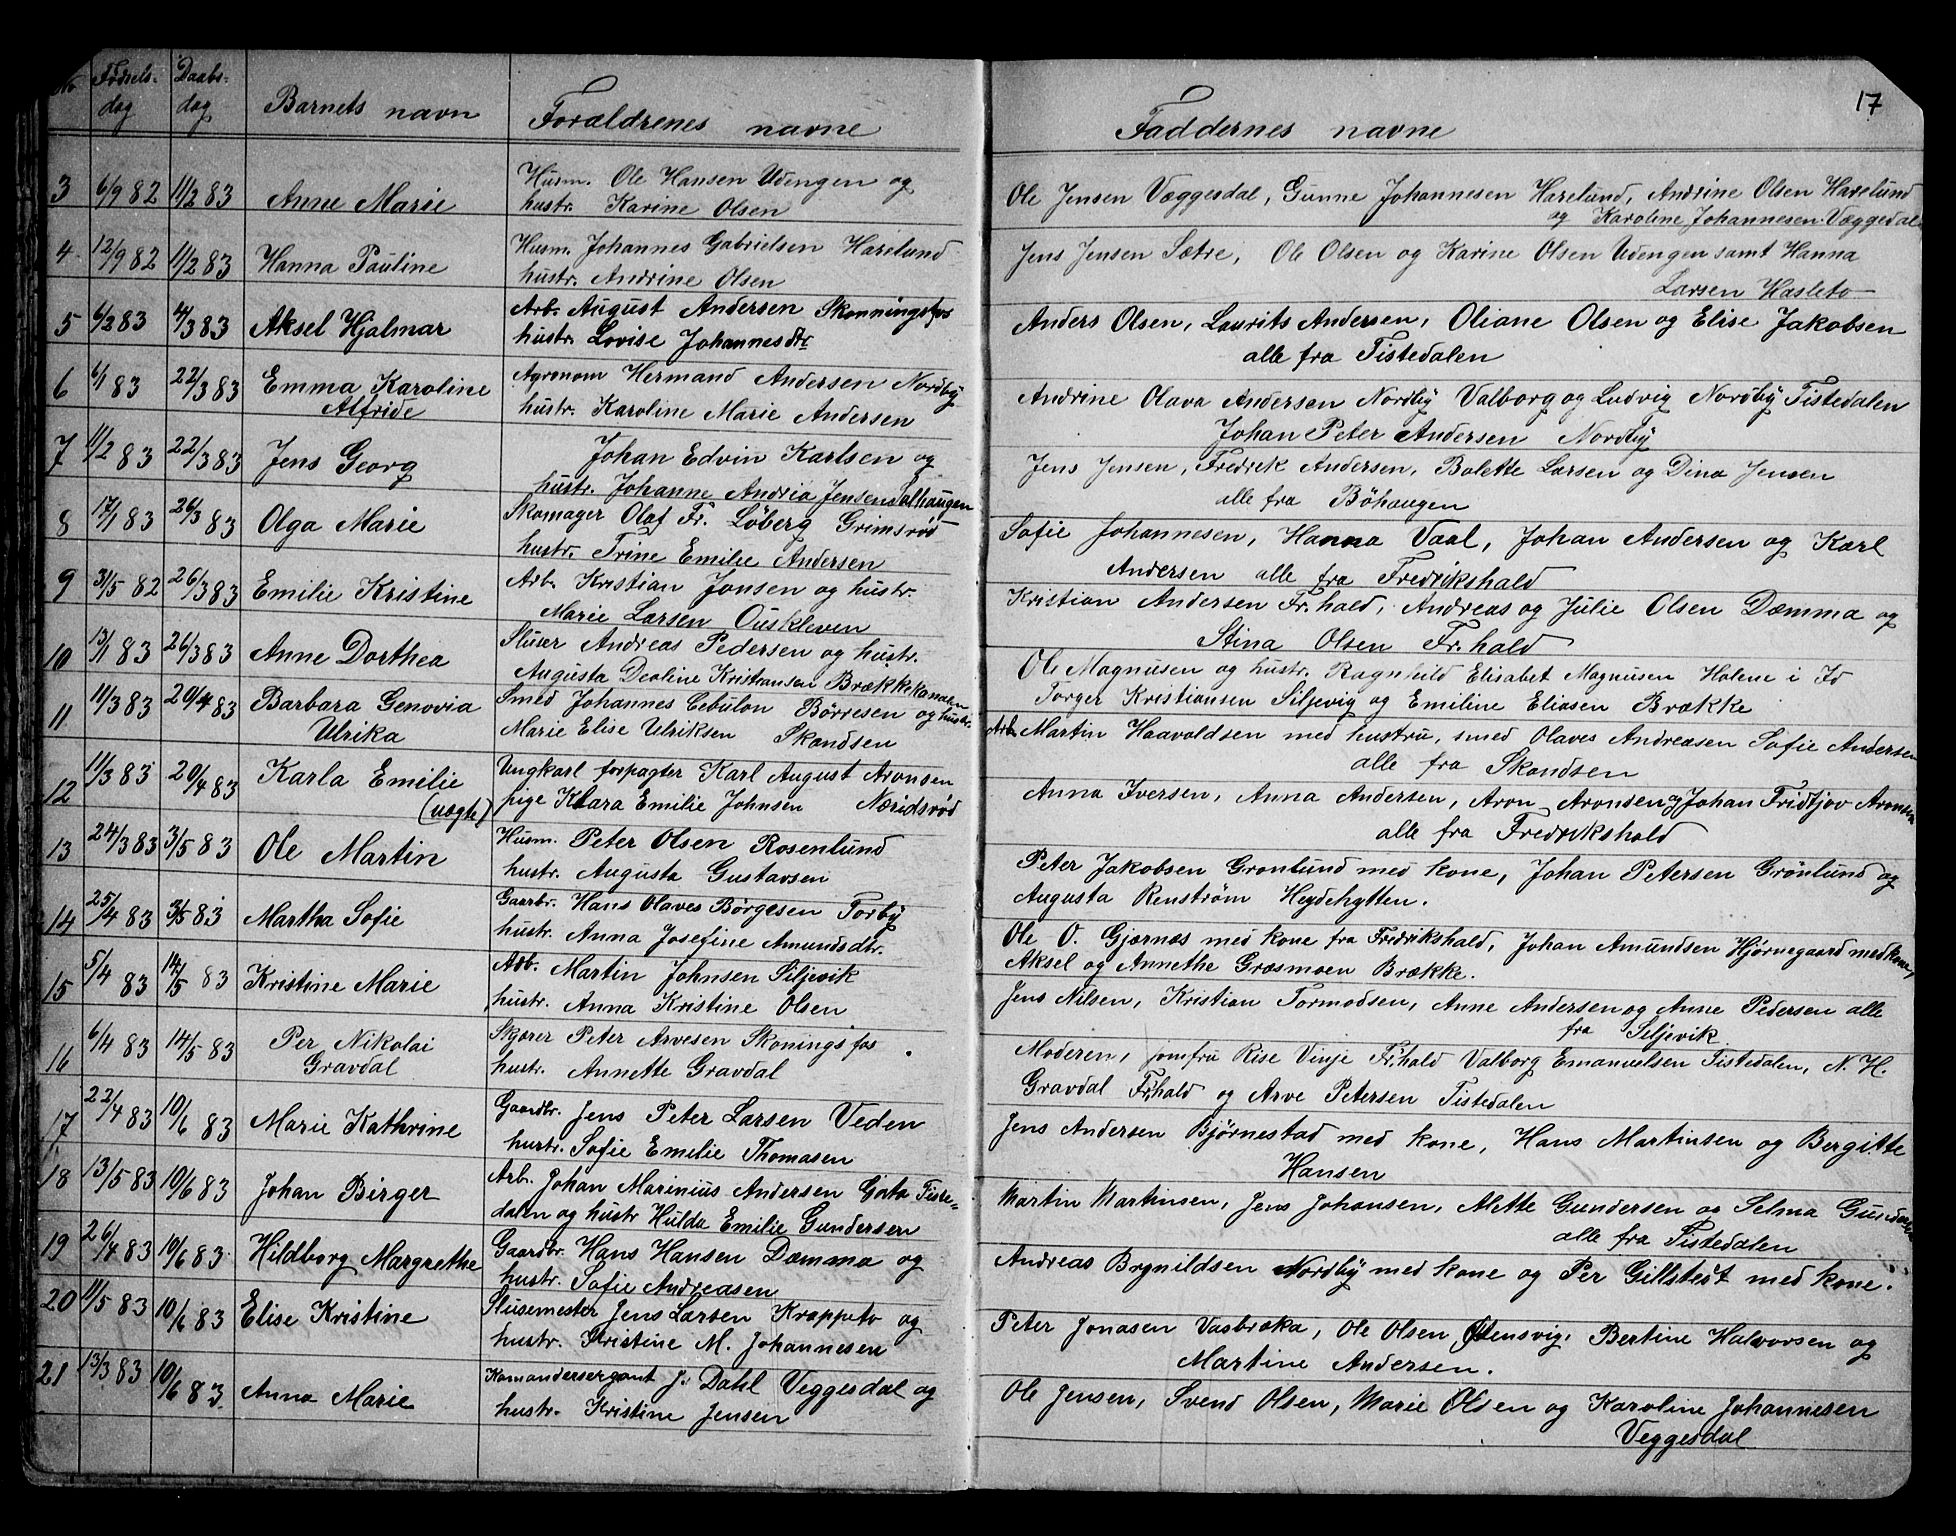 17
No Fødsels- dag Daabs- dag Barnets navn Forældrenes navne Faddernes navne
3 6/9 82 11/2 83 Anne Marie Husm. Ole Hansen Udengen og
hustr. Karine Olsen
Ole Jensen Væggesdal, Gunne Johannesen Harelund, Andrine Olsen Harelund
og Karoline Johannesen Væggedal
4 12/9 82 11/2 83 Hanna Pauline Husm. Johannes Gabrielsen Harelund
hustr. Andrine Olsen
Jens Jensen Sætre, Ole Olsen og Karine Olsen Udengen samt Hanna
Larsen Hasleto
5 6/2 83 4/3 83 Aksel Hjalmar Arb. August Andersen Skonningsfos
hustr. Lovise Johannesdtr
Anders Olsen, Laurits Andersen, Oliane Olsen og Elise Jakobsen
alle fra Tistedalen
6 6/1 83 22/3 83 Emma Karoline
Alfride
Agronom Hermand Andersen Nordby
hustr. Karoline Marie Andersen
Andrine Olava Andersen Nordby Valborg og Ludvig Nordby Tistedalen
Johan Peter Andersen Nordby
7 11/2 83 22/3 83 Jens Georg Johan Edvin Karlsen og
hustr. Johanne Andria Jensen Salhaugen
Jens Jensen, Fredrik Andersen, Bolette Larsen og Dina Jensen
alle fra Böhaugen
8 17/1 83 26/3 83 Olga Marie Skomager Olaf Fr. Löberg Grimsrød
hustr. Trine Emilie Andersen
Sofie Johannesen, Hanna Vaal, Johan Andersen og Karl
Andersen alle fra Fredrikshald
9 31/5 82 26/3 83 Emilie Kristine Arb. Kristian Jonsen og hustr.
Marie Larsen Ouskleven
Kristian Andersen Fr.hald, Andreas og Julie Olsen Dæmma og
Stina Olsen Fr.hald
10 13/1 83 26/3 83 Anne Dorthea Sluser Andreas Pedersen og hustr.
Augusta Deoline Kristiansen Brækkekanalen
Ole Magnusen og hustr. Ragnhild Elisabet Magnusen Holene i Id
Torger Kristiansen Siljevig og Emiline Eliasen Brække
11 11/3 83 20/4 83 Barbara Genovia
Ulrika
Smed Johannes Cebulon Börresen og hustr.
Marie Elise Ulriksen Skandsen
Arb. Martin Haavoldsen med hustru, smed Olaves Andreasen Sofie Andersen
alle fra Skandsen
12 11/3 83 20/4 83 Karla Emilie
(uægte)
Ungkarl forpagter Karl August Aronsen
pige Klara Emilie Johnsen Næridsrød
Anna Iversen, Anna Andersen, Aron Aronsen og Johan Fridtjov Aronsen
alle fra Fredrikshald
13 24/3 83 3/5 83 Ole Martin Husm. Peter Olsen Rosenlund
hustr. Augusta Gustavsen
Peter Jakobsen Grönlund med kone, Johan Petersen Grönlund og
Augusta Renström Heydehytten.
14 25/4 83 3/5 83 Martha Sofie Gaarbr. Hans Olaves Börgesen Torby
hustr. Anna Josefine Amundsdtr.
Ole O. Gjærnæs med kone fra Fredrikshald, Johan Amundsen Hjörnegaard med kone,
Aksel og Annethe Græsmoen Brække.
15 5/4 83 14/5 83 Kristine Marie Arb. Martin Johnsen Siljevik
hustr. Anna Kristine Olsen
Jens Nilsen, Kristian Tormodsen, Anne Andersen og Anne Pedersen alle
fra Siljevik
16 6/4 83 14/5 83 Per Nikolai
Gravdal
Skjører Peter Arvesen Skoningsfos
hustr. Annette Gravdal
Moderen, jomfru Rise Vinje Fr.hald Valborg Emanuelsen Tistedalen, N. H.
Gravdal Fr.hald og Arve Petersen Tistedalen
17 22/4 83 10/6 83 Marie Kathrine Gaardbr. Jens Peter Larsen Veden
hustr. Sofie Emelie Thomasen
Jens Andersen Björnestad med kone, Hans Martinsen og Bergitte
Hansen
18 13/5 83 10/6 83 Johan Birger Arb. Johan Marinius Andersen Gjøta Tiste-
dalen og hustr Hulda Emilie Gundersen
Martin Martinsen, Jens Johansen, Mette Gundersen og Selma Gundersen
alle fra Tistedalen
19 26/4 83 10/6 83 Hildborg Margrethe Gaardbr. Hans Hansen Dæmma og
hustr. Sofie Andreasen
Andreas Brynildsen Nordby med kone og Per Gillstedt med kone.
20 11/5 83 10/6 83 Elise Kristine Slusemester Jens Larsen Krappeto og
hustr. Kristine M. Johannesen
Peter Jonasen Vasbraka, Ole Olsen Stensvig, Bertine Halvorsen og
Martine Andersen.
21 13/3 83 10/6 83 Anna Marie Komandersergant J. Dahl Veggesdal og
hustr. Kristine Jensen
Ole Jensen, Svend Olsen, Marie Olsen og Karoline Johannesen
Veggesdal